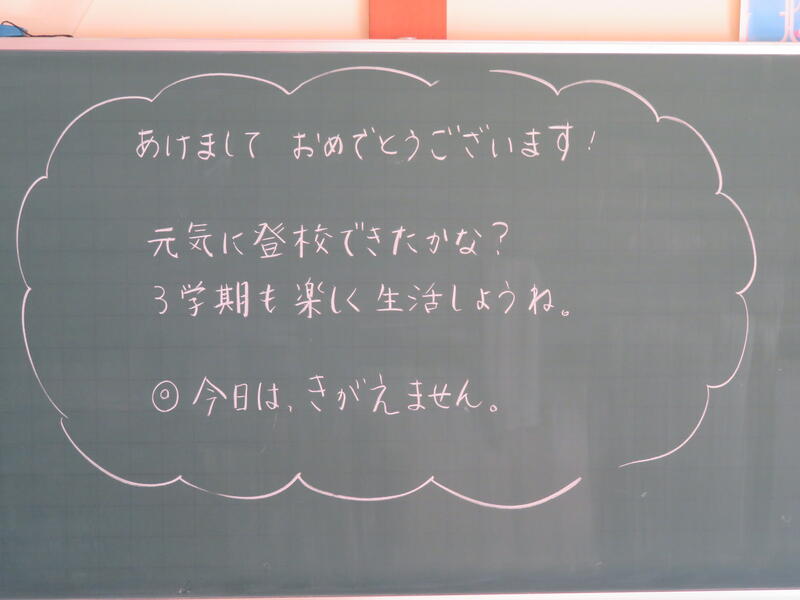 あけまして おめでとうございます!
元気に登校できたかな?
3学期も楽しく生活しようね。
◎今日は、きがえません。